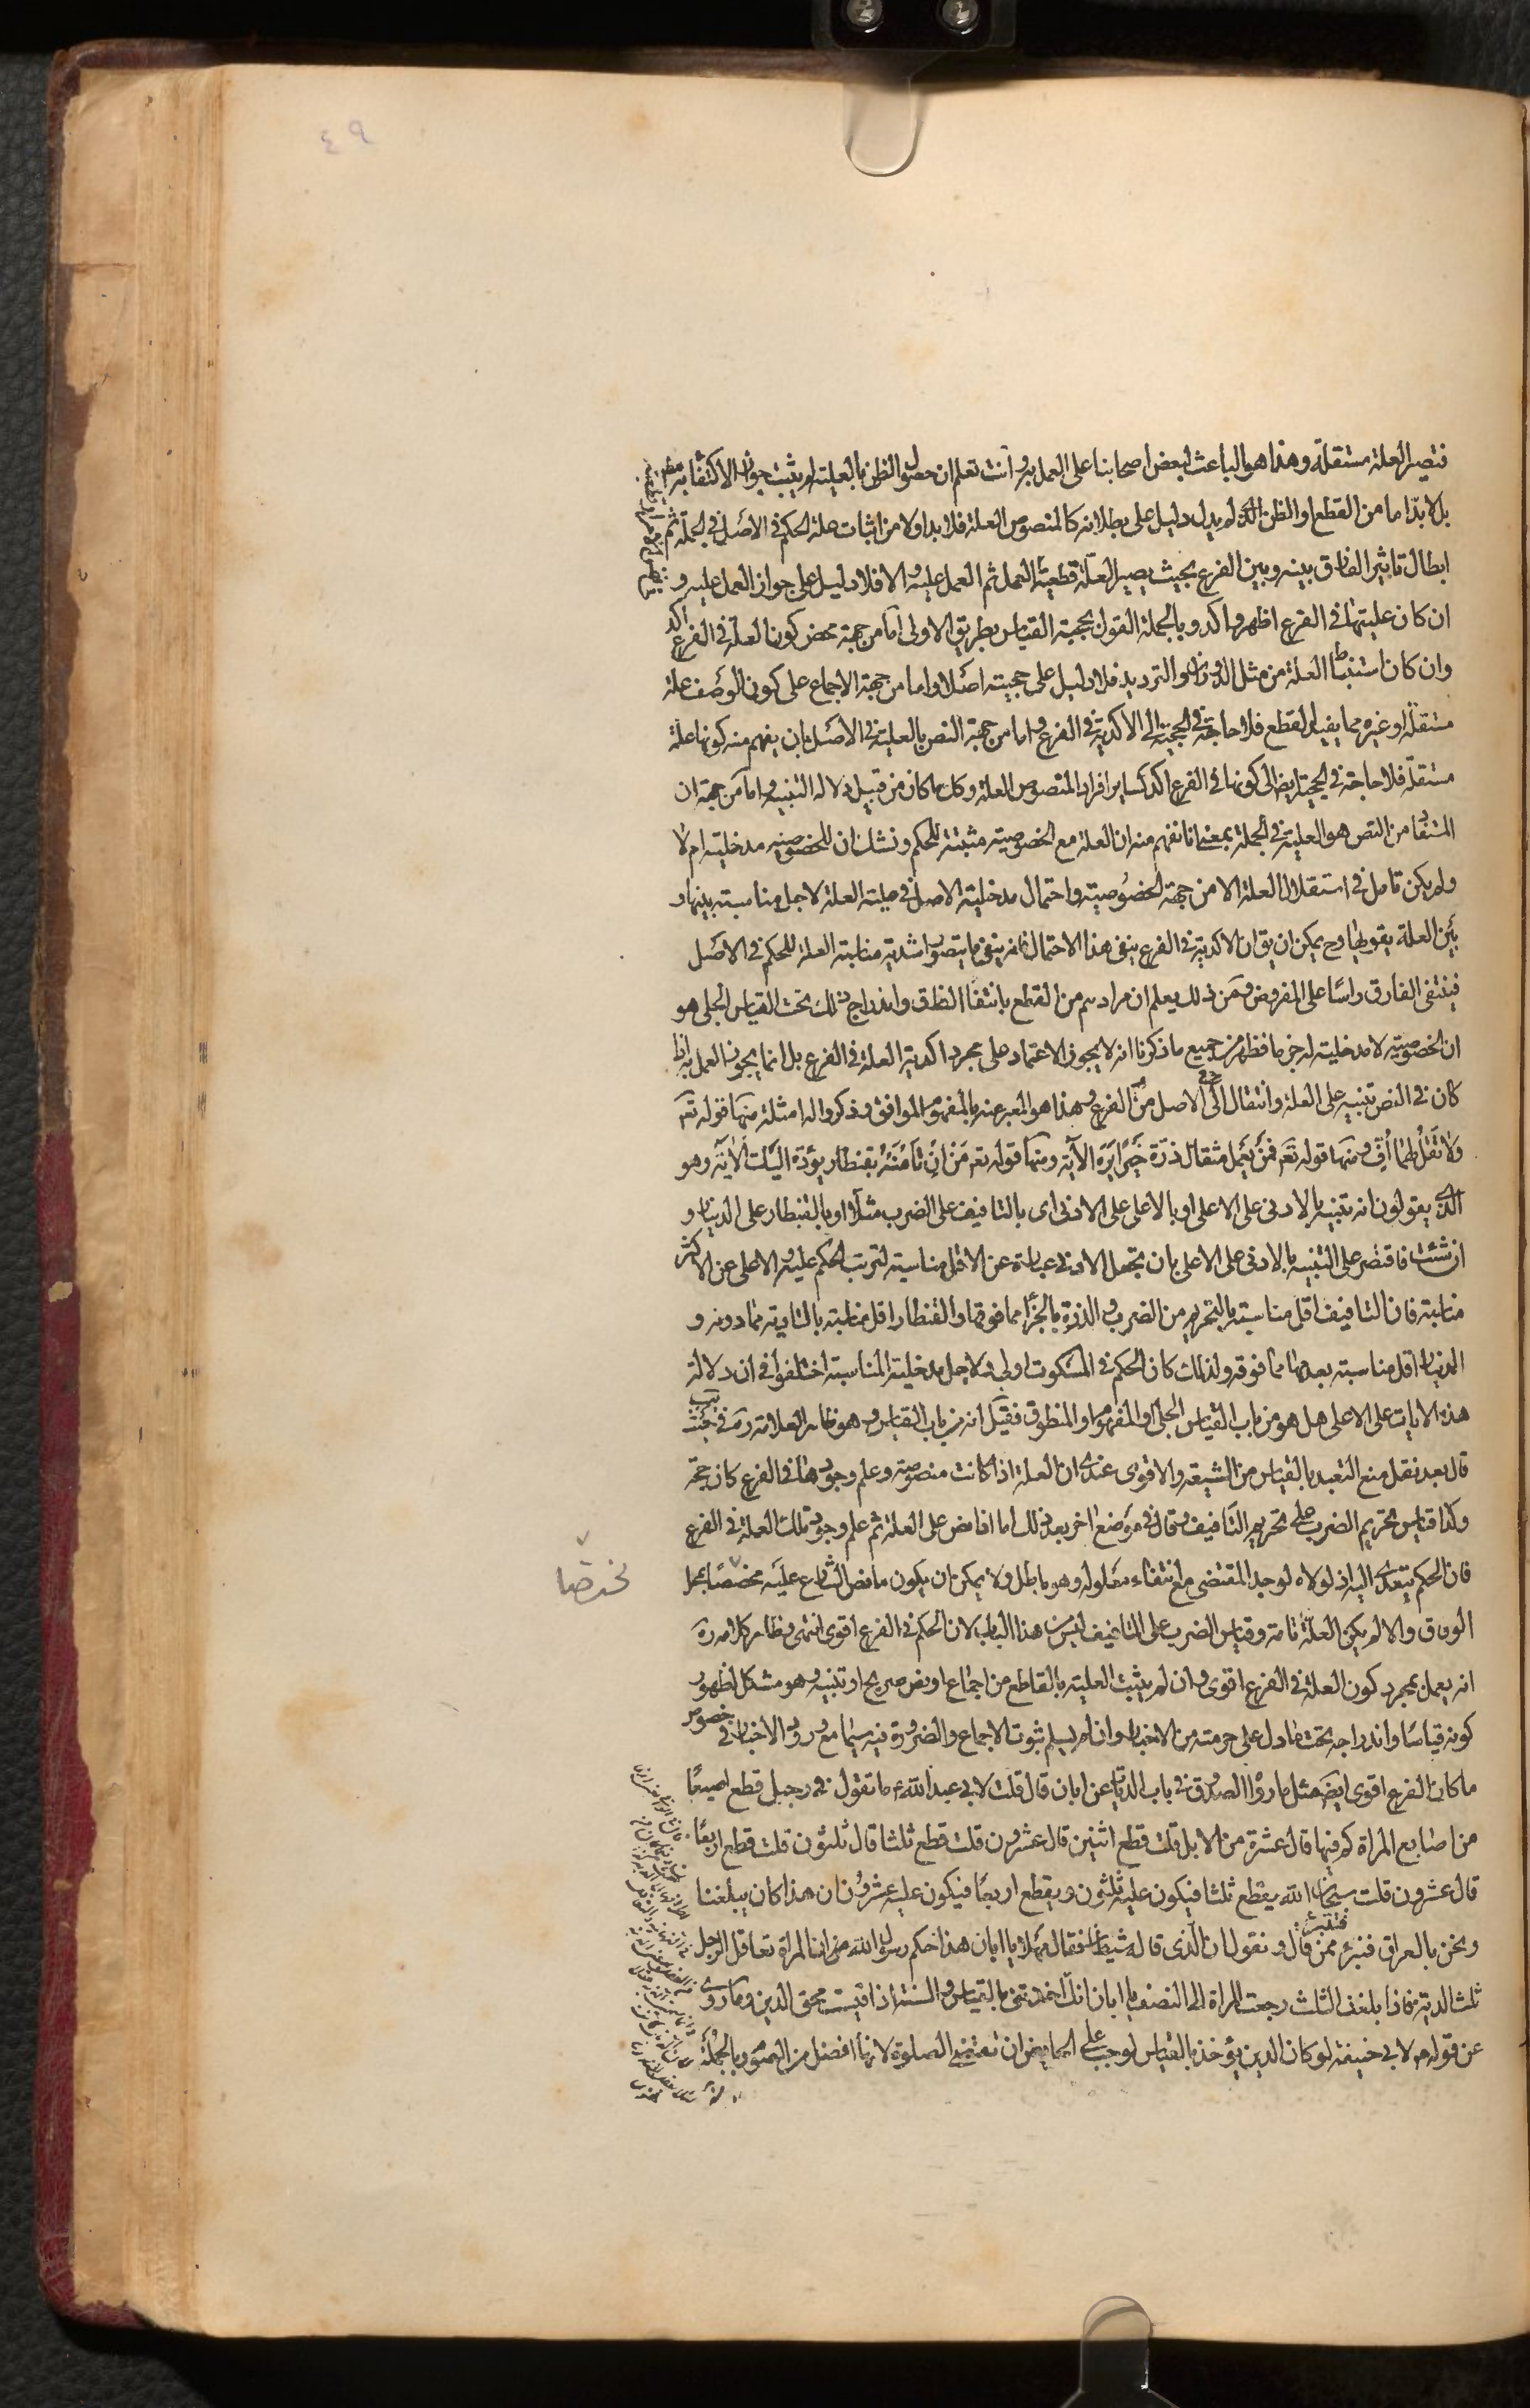 ٤٩
فتصير العلة مستقلة وهذا هو الباعث لبعض اصحابنا على العمل به وانت تعلم ان حصول الظن بالعلية لم يثبت جواز الاكتفاء به
بل لا بد اما من القطع او الظن الذي لم يدل دليل على بطلانه كالمنصوص العلة فلا بد اولا من اثبات علة الحكم في الاصل في الجملة ثم
ابطال تاثير الفارق بينه وبين الفرع بحيث يصير العلة قطعية العمل ثم العمل عليه والا فلا دليل على جواز العمل عليه و
ان كان عليتها في الفرع اظهر واكد وبالجملة القول بحجية القياس بطريق الاولى اما من جهة محض كون العلة في الفرع اكد
وان كان استنباط العلة من مثل الدوران والترديد فلا دليل على حجيته اصلا واما من جهة الاجماع على كون الوصف علة
مستقلة او غيره مما يفيد القطع فلا حاجة في الحجية الى الاكدية في الفرع واما من جهة النص بالعلية في الاصل بان يفهم منه كونها علة
مستقلة فلا حاجة في الحجية ايض الى كونها في الفرع اكد كساير افراد المنصوص العلة وكل ما كان من قبيل دلالة التنبيه واما من جهة ان
المستفاد من النص هو العلية في الجملة بمعنى انا نفهم منه ان العلة مع الخصوصية مثبتة للحكم ونشك ان للخصوصية مدخلية ام لا
ولم يكن تامل في استقلال العلة الا من جهة الخصوصية واحتمال مدخلية الاصل في علية العلة لاجل مناسبة بينها و
بين العلة يقويها وح يمكن ان يق ان الاكدية في الفرع ينفي هذا الاحتمال فانه ينفي ما يتصور اشدية مناسبة العلة للحكم في الاصل
فينتفي الفارق راسا على المفروض ومن ذلك يعلم ان مرادهم من القطع بانتفاء الفارق واندراج ذلك تحت القياس الجلي هو
ان الخصوصية لا مدخلية له جزما فظهر من جميع ما ذكرنا انه لا يجوز الاعتماد على مجرد اكدية العلة في الفرع بل انما يجوز العمل به اذا
كان في النص تنبيه على العلة وانتقال من الاصل الى الفرع وهذا هو المعبر عنه بالمفهوم الموافق وذكروا له امثلة منها قوله تع
ولا تقل لهما اف ومنها قوله تع فمن يعمل مثقال ذرة خيرا يره الآية ومنها قوله تع من ان تامنه بقنطار يؤده اليك الآية وهو
الذي يقولون انه تنبيه بالادنى على الاعلى او بالاعلى على الادنى اى بالتافيف على الضرب مثلا او بالقنطار على الدينار و
ان شئت فاقتصر على التنبيه بالادنى على الاعلى بان تجعل الادنى عبارة عن الاقل مناسبة لترتب الحكم عليه والاعلى عن الاكثر
مناسبة فان التافيف اقل مناسبة بالتحريم من الضرب والذرة بالجزاء مما فوقها والقنطار اقل مناسبة بالتادية مما دونه و
الدينار اقل مناسبة بعدمها مما فوقه ولذلك كان الحكم في المسكوت اولى ولاجل مدخلية المناسبة اختلفوا في ان دلالة
هذه الايات على الاعلى هل هو من باب القياس الجلي او المفهوم او المنطوق فقيل انه من باب القياس وهو ظاهر العلامة ره في يب حيث
قال بعد نقل منع التعبد بالقياس من الشيعة والاقوى عندي ان العلة اذا كانت منصوصة وعلم وجودها في الفرع كان حجة
وكذا قياس تحريم الضرب على تحريم التافيف وقال في موضع اخر بعد ذلك اما اذا نص على العلة ثم علم وجود تلك العلة في الفرع
فان الحكم يتعدى اليه اذ لولاه لوجد المقتضي مع انتفاء معلوله وهو باطل ولا يمكن ان يكون ما نص الشارع عليه مخصصا بمحل
الوفاق والا لم يكن العلة تامة وقياس الضرب على التافيف ليس من هذا الباب لان الحكم في الفرع اقوى انتهى وظاهر كلامه ره
انه يعمل بمجرد كون العلة في الفرع اقوى وان لم يثبت العلية بالقاطع من اجماع او نص صريح او تنبيه وهو مشكل لظهور
كونه قياسا واندراجه تحت ما دل على حرمته من الاخبار وان لم يسلم ثبوت الاجماع والضرورة فيه سيما مع ورود الاخبار في خصوص
ما كان الفرع اقوى ايض مثل ما رواه الصدوق في باب الديات عن ابان قال قلت لابي عبد الله ع ما تقول في رجل قطع اصبعا
من اصابع المراة كم فيها قال عشرة من الابل قلت قطع اثنين قال عشرون قلت قطع ثلثا قال ثلثون قلت قطع اربعا
قال عشرون قلت سبحان الله يقطع ثلثا فيكون عليه ثلثون ويقطع اربعا فيكون عليه عشرون ان هذا كان يبلغنا
ونحن بالعراق فنبرء ممن قال ونقول ان الذي قاله شيطان فقال مهلا يا ابان هذا حكم رسول الله ص ان المراة تعاقل الرجل
ثلث الدية فاذا بلغت الثلث رجعت المراة الى النصف يا ابان انك اخذتني بالقياس والسنة اذا قيست محق الدين وما روي
عن قوله ع لابي حنيفة لو كان الدين يؤخذ بالقياس لوجب على الحايض ان تقضي الصلوة لانها افضل من الصوم وبالجملة
مخصصا